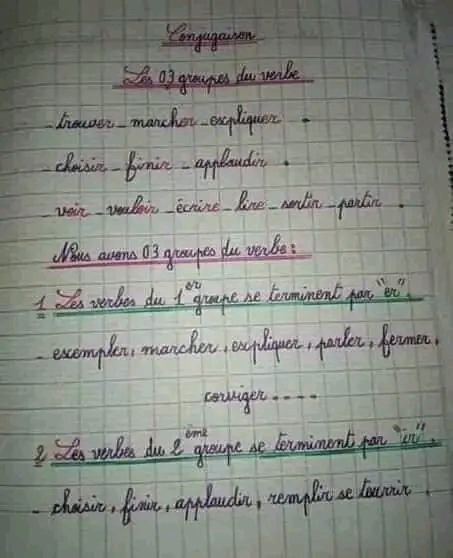 Conjugaison
Les 03 groupes du verbe
- trouver - marcher - expliquer .
- choisir - finir - applaudir .
- voir - vouloir - écrire - lire - sortir - partir .
Nous avons 03 groupes du verbe :
1 Les verbes du 1er groupe se terminent par "er".
- exempler, marcher, expliquer, parler, fermer,
corriger - - - -
2 Les verbes du 2ème groupe se terminent par "ir".
- choisir, finir, applaudir, remplir se